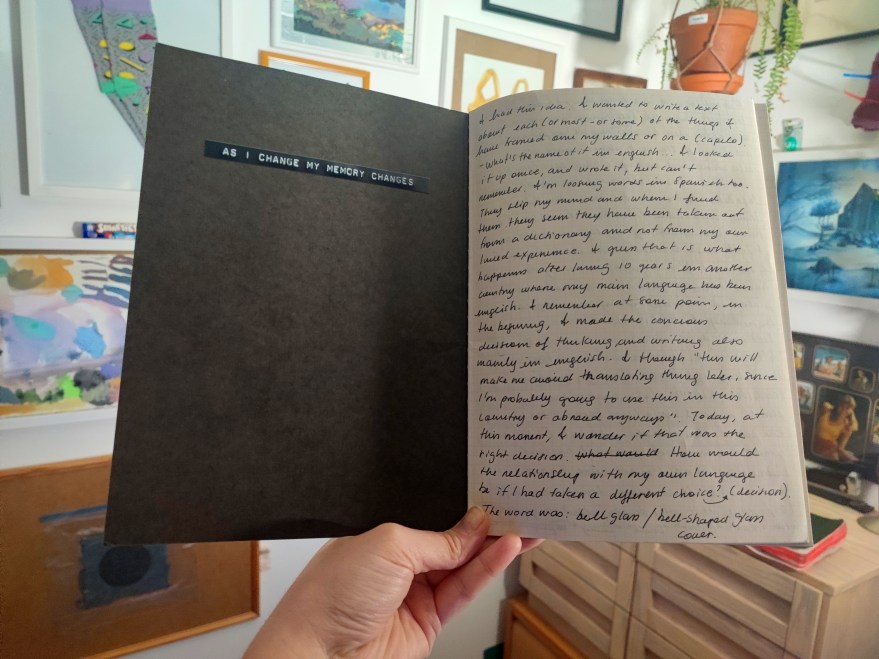 AS I CHANGE MY MEMORY CHANGES
I had this idea. I wanted to write a text
about each (or most - or some) of the things I
have framed one my walls or on a (capelo).
- What's the name of it im english... I looked
it up once, and wrote it, but can't
remember. I'm loosing words in Spanish too.
They slip my mind and when I find
them they seem they have been taken out
from a dictionary and not from my own
lived experience. I guess that is what
happens after living 10 years in another
country where my main language has been
english. I remember at some poin, in
the begining, I made the concious
decision of thinking and writing also
mainly in english. I though "this will
make me avoid translating thing later, since
I'm probably going to use this in this
country or abroad anyways". Today, at
this moment, I wonder if that was the
right decision. What would How would
the relationship with my own language
be if I had taken a different choice? (decision).
The word was: bell glass / bell-shaped glass
cover.